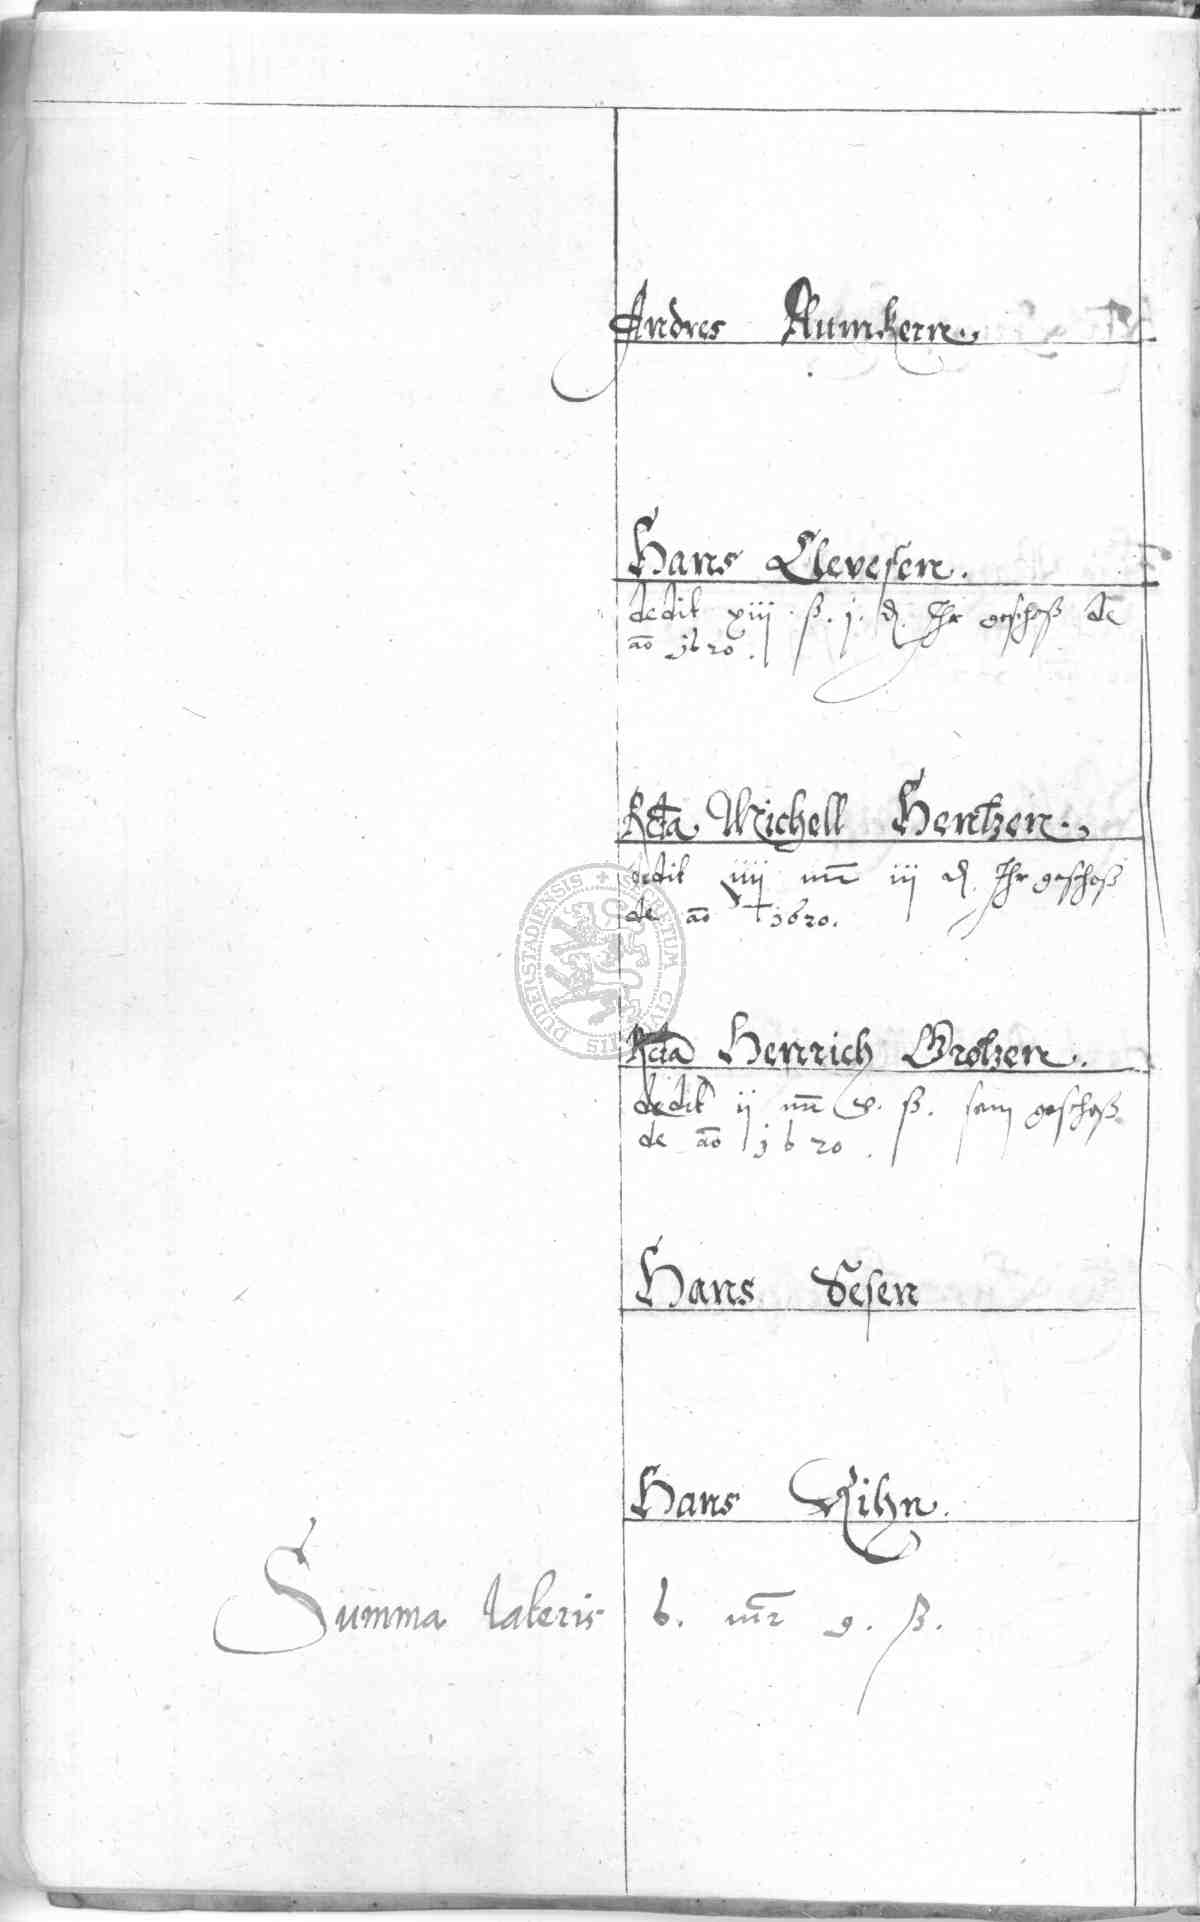 Andres Rumkern.
Hans Clevesen.
dedit xiij. ß. j. ₰. Ihr geschoß de
ao 1620.
Rcta Michell Hentzen.
dedit iiij mr iij ₰. Ihr geschoß
de ao 1620.
Rcta Henrich Grotzen.
dedit ij mr v. ß. sein geschoß
de ao 1620.
Hans Sesen
Hans Kihn.
Summa lateris 6. mr 9. ß.
SECRETUM CIVI
TIS DUDERSTADIENSIS